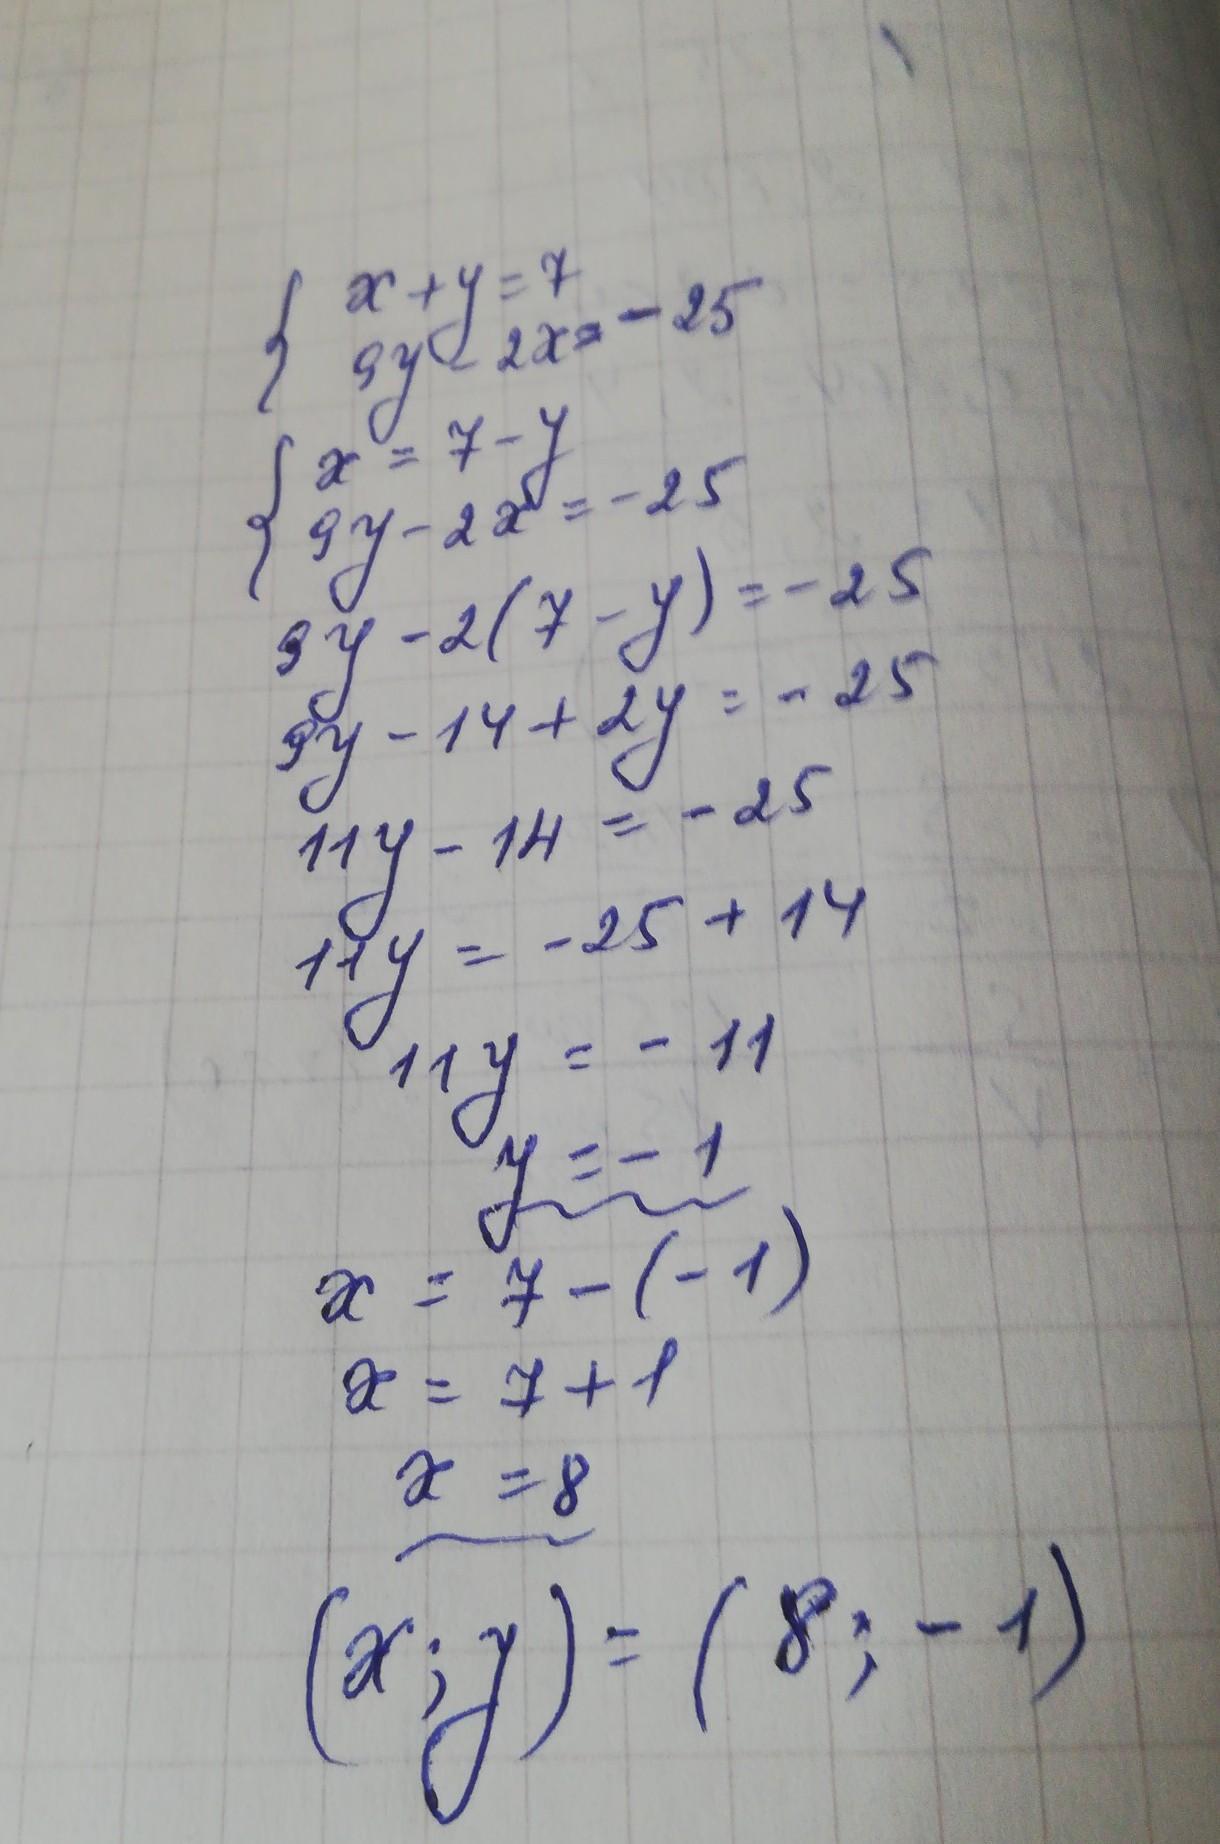 x + y = 7
9y - 2x = - 25
x = 7 - y
9y - 2x = - 25
9y - 2(7 - y) = - 25
9y - 14 + 2y = - 25
11y - 14 = - 25
11y = - 25 + 14
11y = - 11
y = - 1
x = 7 - (- 1)
x = 7 + 1
x = 8
(x; y) = (8; - 1)